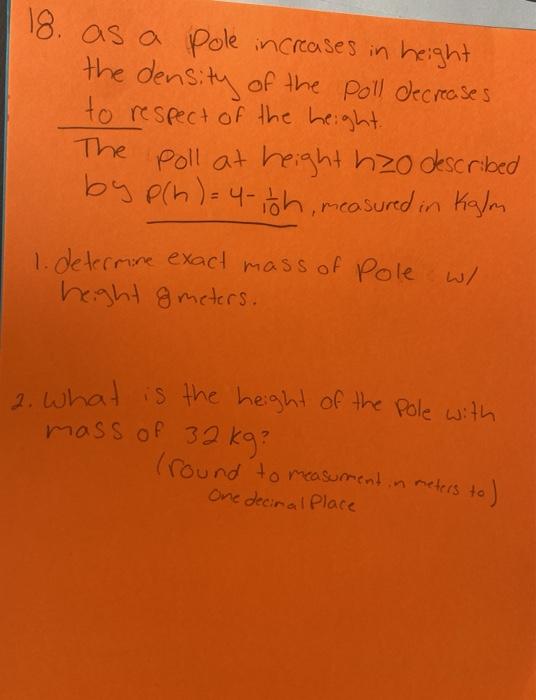 18. as a Pole increases in height
the density of the Poll decreases
to respect of the height.
The Poll at height h≥0 described
by ρ(h) = 4 - 1/10 h, measured in Kg/m
1. determine exact mass of Pole w/
height 8 meters.
2. What is the height of the Pole with
mass of 32 kg?
(round to measurment in meters to)
One decimal Place